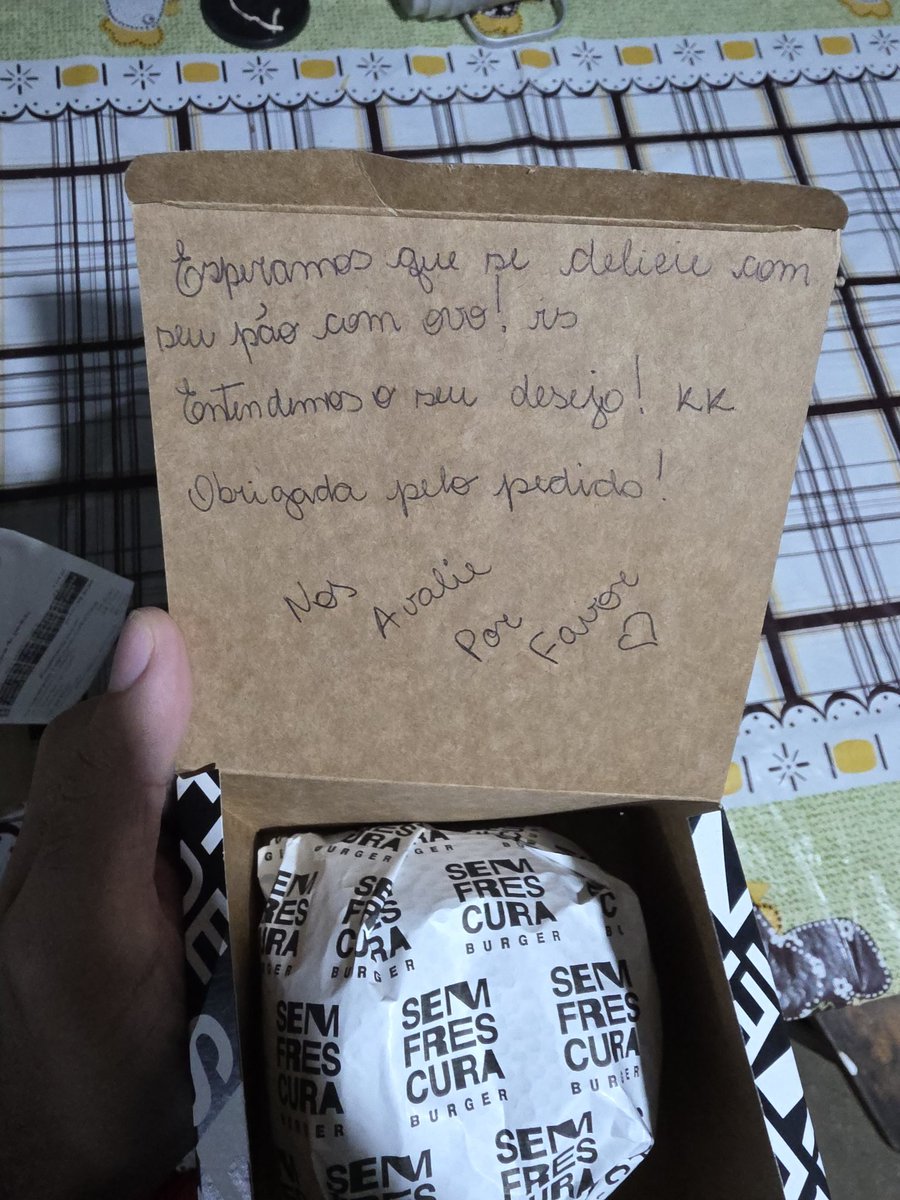 Esperamos que se delicie com
seu pão com ovo! rs
Entendemos o seu desejo! KK
Obrigada pelo pedido!
Nos Avalie Por Favor ♡
BURGER
SEM
FRES
CURA
BURGER
SEM
FRES
CURA
BURGER
SEM
FRES
CURA
BURGER
SEM
FRES
CURA
BURGER
SEM
FRES
CURA
BURGER
SEM
FRES
CURA
SEM
FRES
CURA